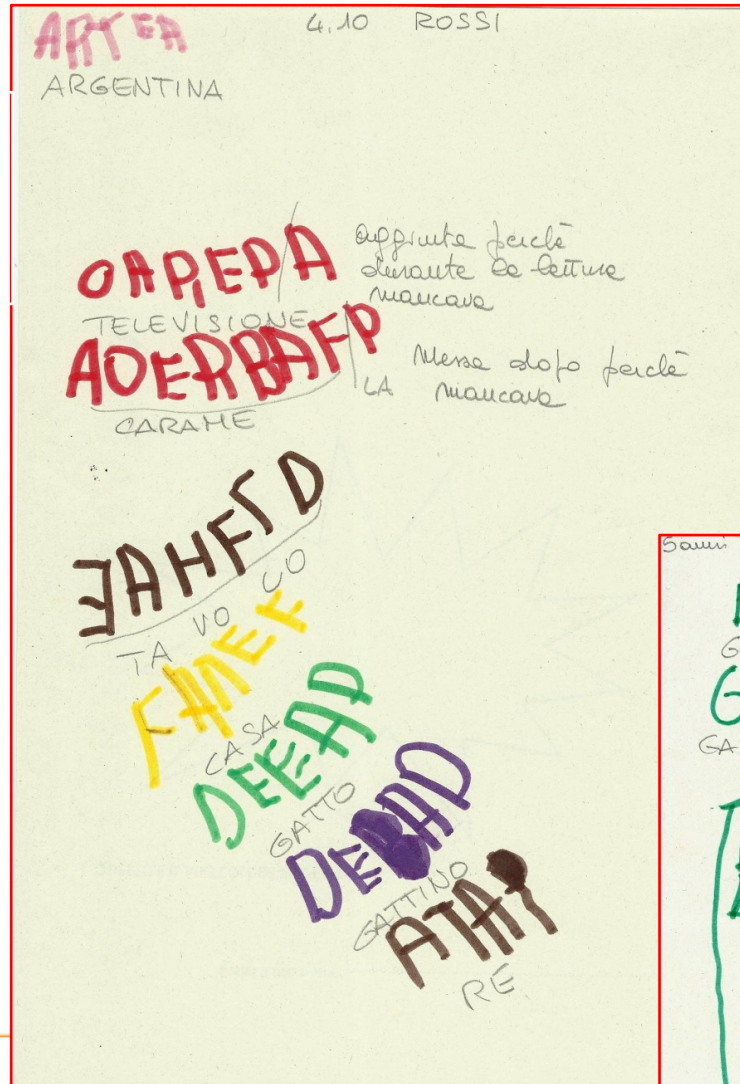 ARTEA
4.10 ROSSI
ARGENTINA
OAPIEPA
aggiunta perchè
durante la lettura
mancava
TELEVISIONE
AOERBAFP
Messa dopo perchè
LA mancava
CARAME
TA VO LO
CASA
DEEAP
GATTO
DEBAD
GATTINO
ATAP
RE
GA